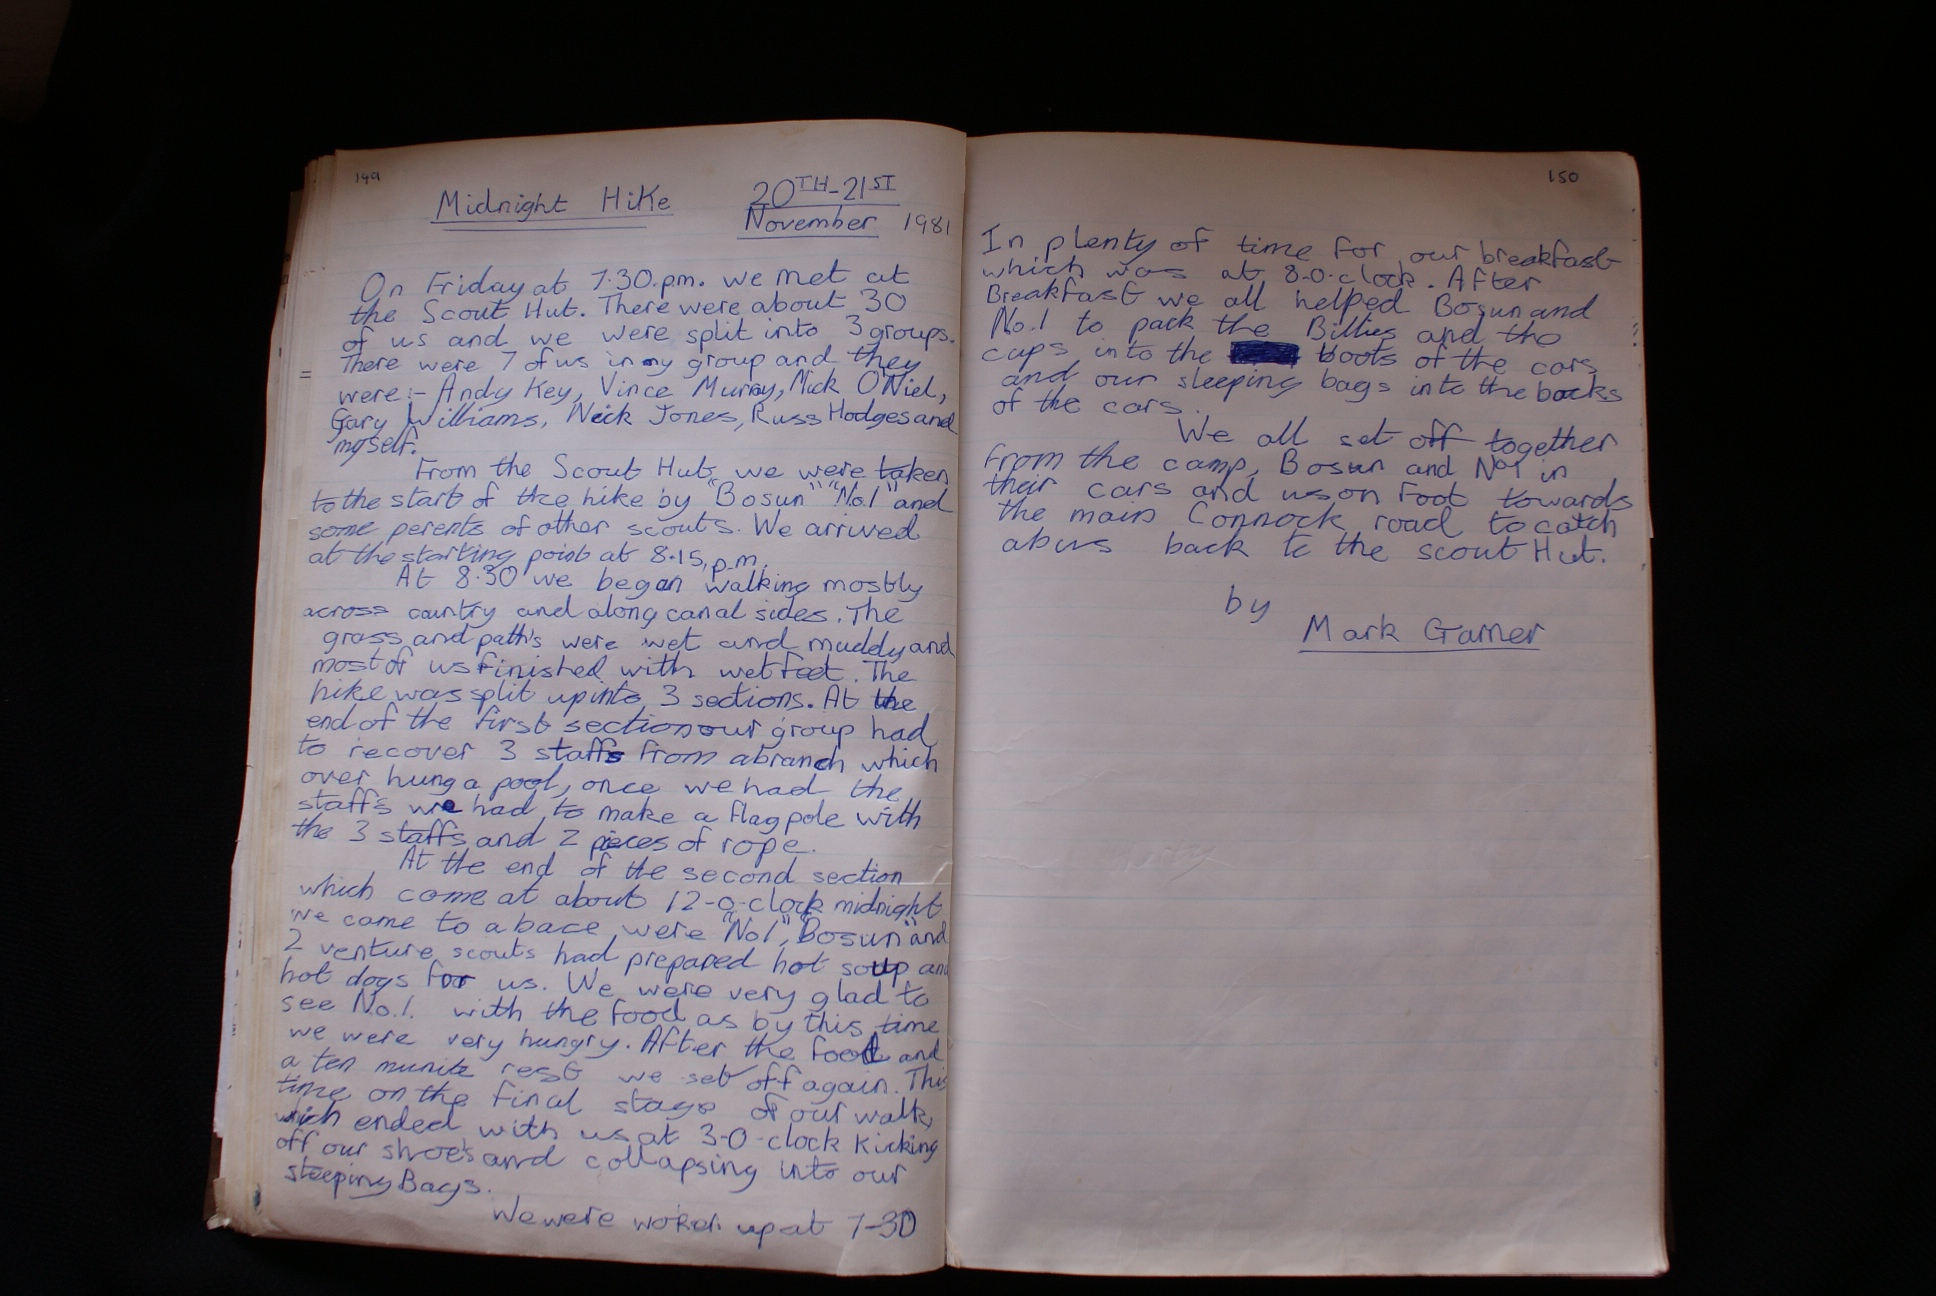 149
Midnight Hike 20TH-21ST
November 1981
On Friday at 7.30.p.m. we met at
the Scout Hut. There were about 30
of us and we were split into 3 groups.
There were 7 of us in my group and they
were:- Andy Key, Vince Murray, Mick O'Niel,
Gary Williams, Nick Jones, Russ Hodges and
myself.
From the Scout Hut, we were taken
to the start of the hike by "Bosun" "No.1" and
some perents of other scouts. We arrived
at the starting point at 8.15,p.m.
At 8.30 we began walking mostly
across country and along canal sides. The
grass and path's were wet and muddy and
most of us finished with wet feet. The
hike was split up into 3 sections. At the
end of the first section our group had
to recover 3 staffs from a branch which
over hung a pool, once we had the
staffs we had to make a flagpole with
the 3 staffs and 2 pieces of rope.
At the end of the second section
which came at about 12-o-clock midnight
we came to a bace were "No1", "Bosun" and
2 venture scouts had prepared hot soup and
hot dogs for us. We were very glad to
see No.1. with the food as by this time
we were very hungry. After the food and
a ten munite rest we set off again. This
time on the final stage of our walk,
which ended with us at 3-0-clock kicking
off our shoes and collapsing into our
sleeping Bags.
We were woken up at 7-30
150
In plenty of time for our breakfast
which was at 8-0-clock. After
Breakfast we all helped Bosun and
No.1 to pack the Billies and the
cups into the boots of the cars
and our sleeping bags into the backs
of the cars.
We all set off together
from the camp, Bosun and No1 in
their cars and us on foot towards
the main Connock road to catch
a bus back to the scout Hut.
by
Mark Garner